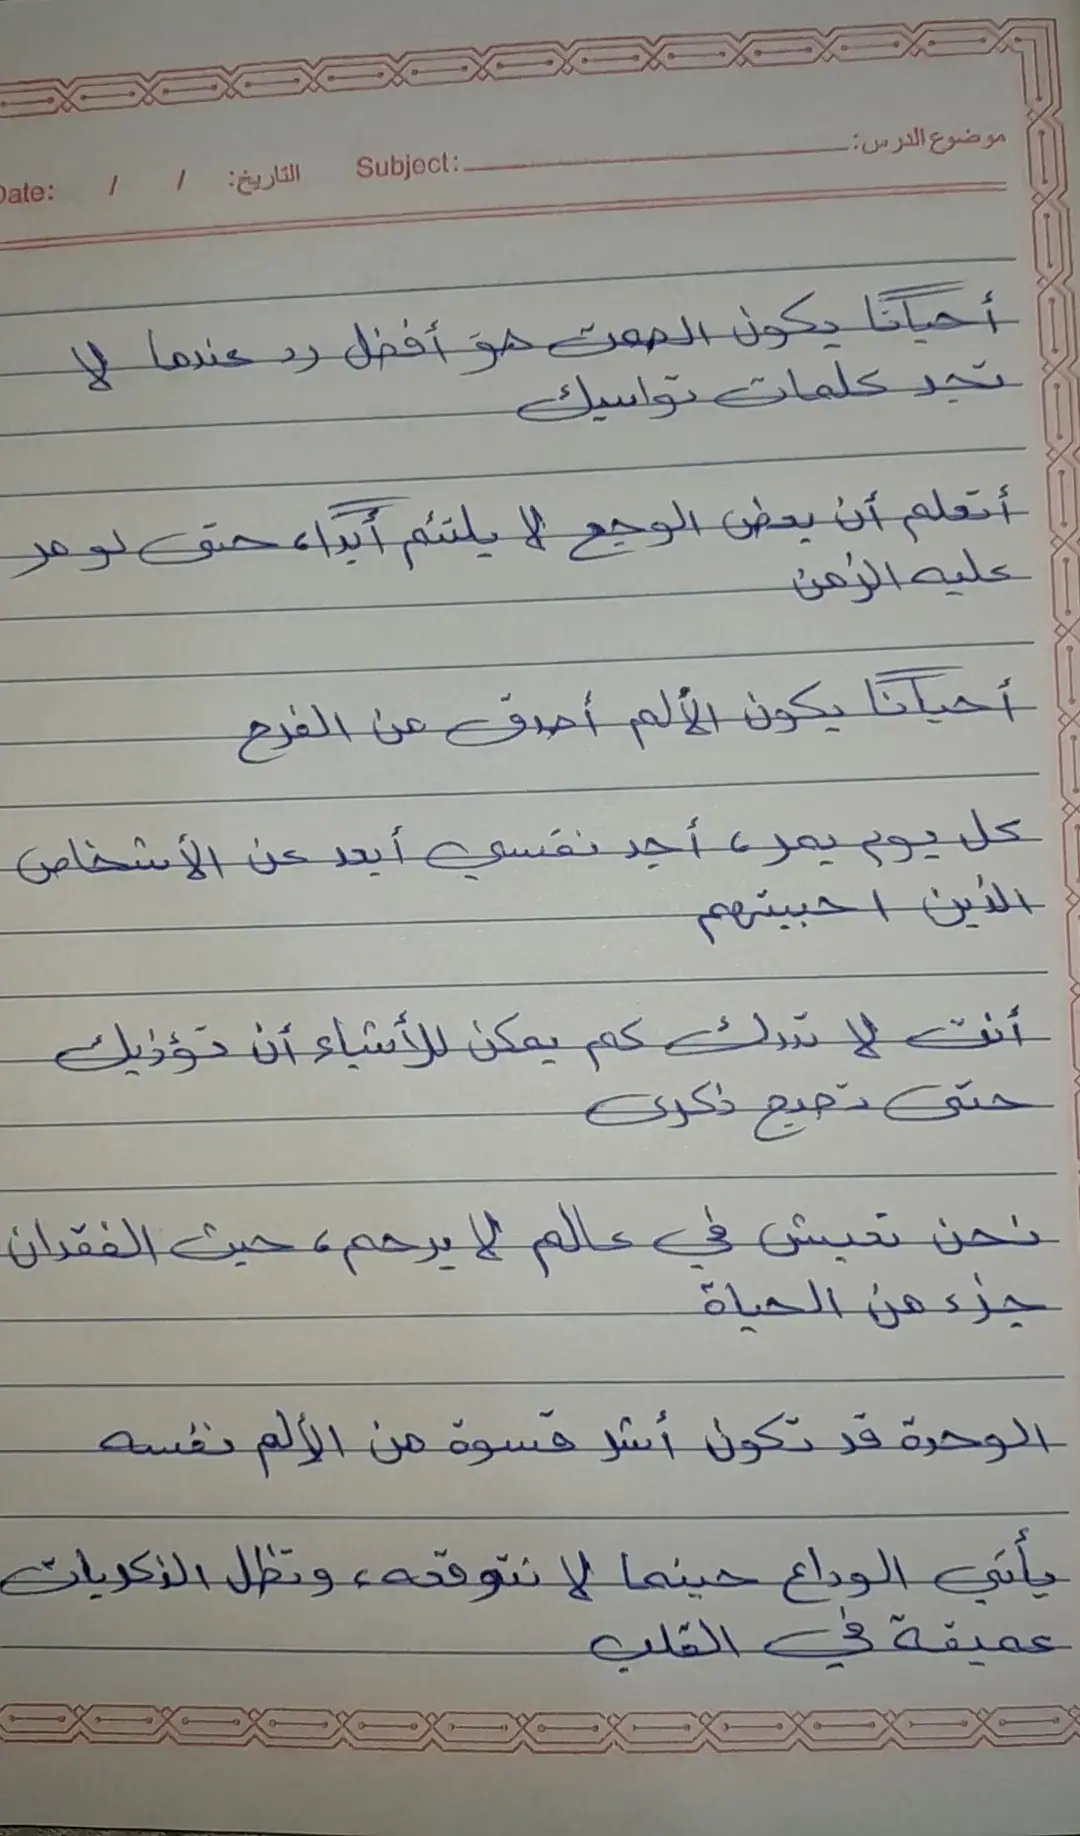 موضوع الدرس:
Subject:
التاريخ: / /
Date:
أحيانًا يكون الصمت هو أفضل رد عندما لا
تجد كلمات تواسيك
أتعلم أن بعض الوجع لا يلتئم أبدًا، حتى لو مر
عليه الزمن
أحيانًا يكون الألم أصدق من الفرح
كل يوم يمر، أجد نفسي أبعد عن الأشخاص
الذين احببتهم
أنت لا تدرك كم يمكن للأشياء أن تؤذيك
حتى تصبح ذكرى
نحن نعيش في عالم لا يرحم، حيث الفقدان
جزء من الحياة
الوحدة قد تكون أشد قسوة من الألم نفسه
يأتي الوداع حينما لا نتوقعه، وتظل الذكريات
عميقة في القلب